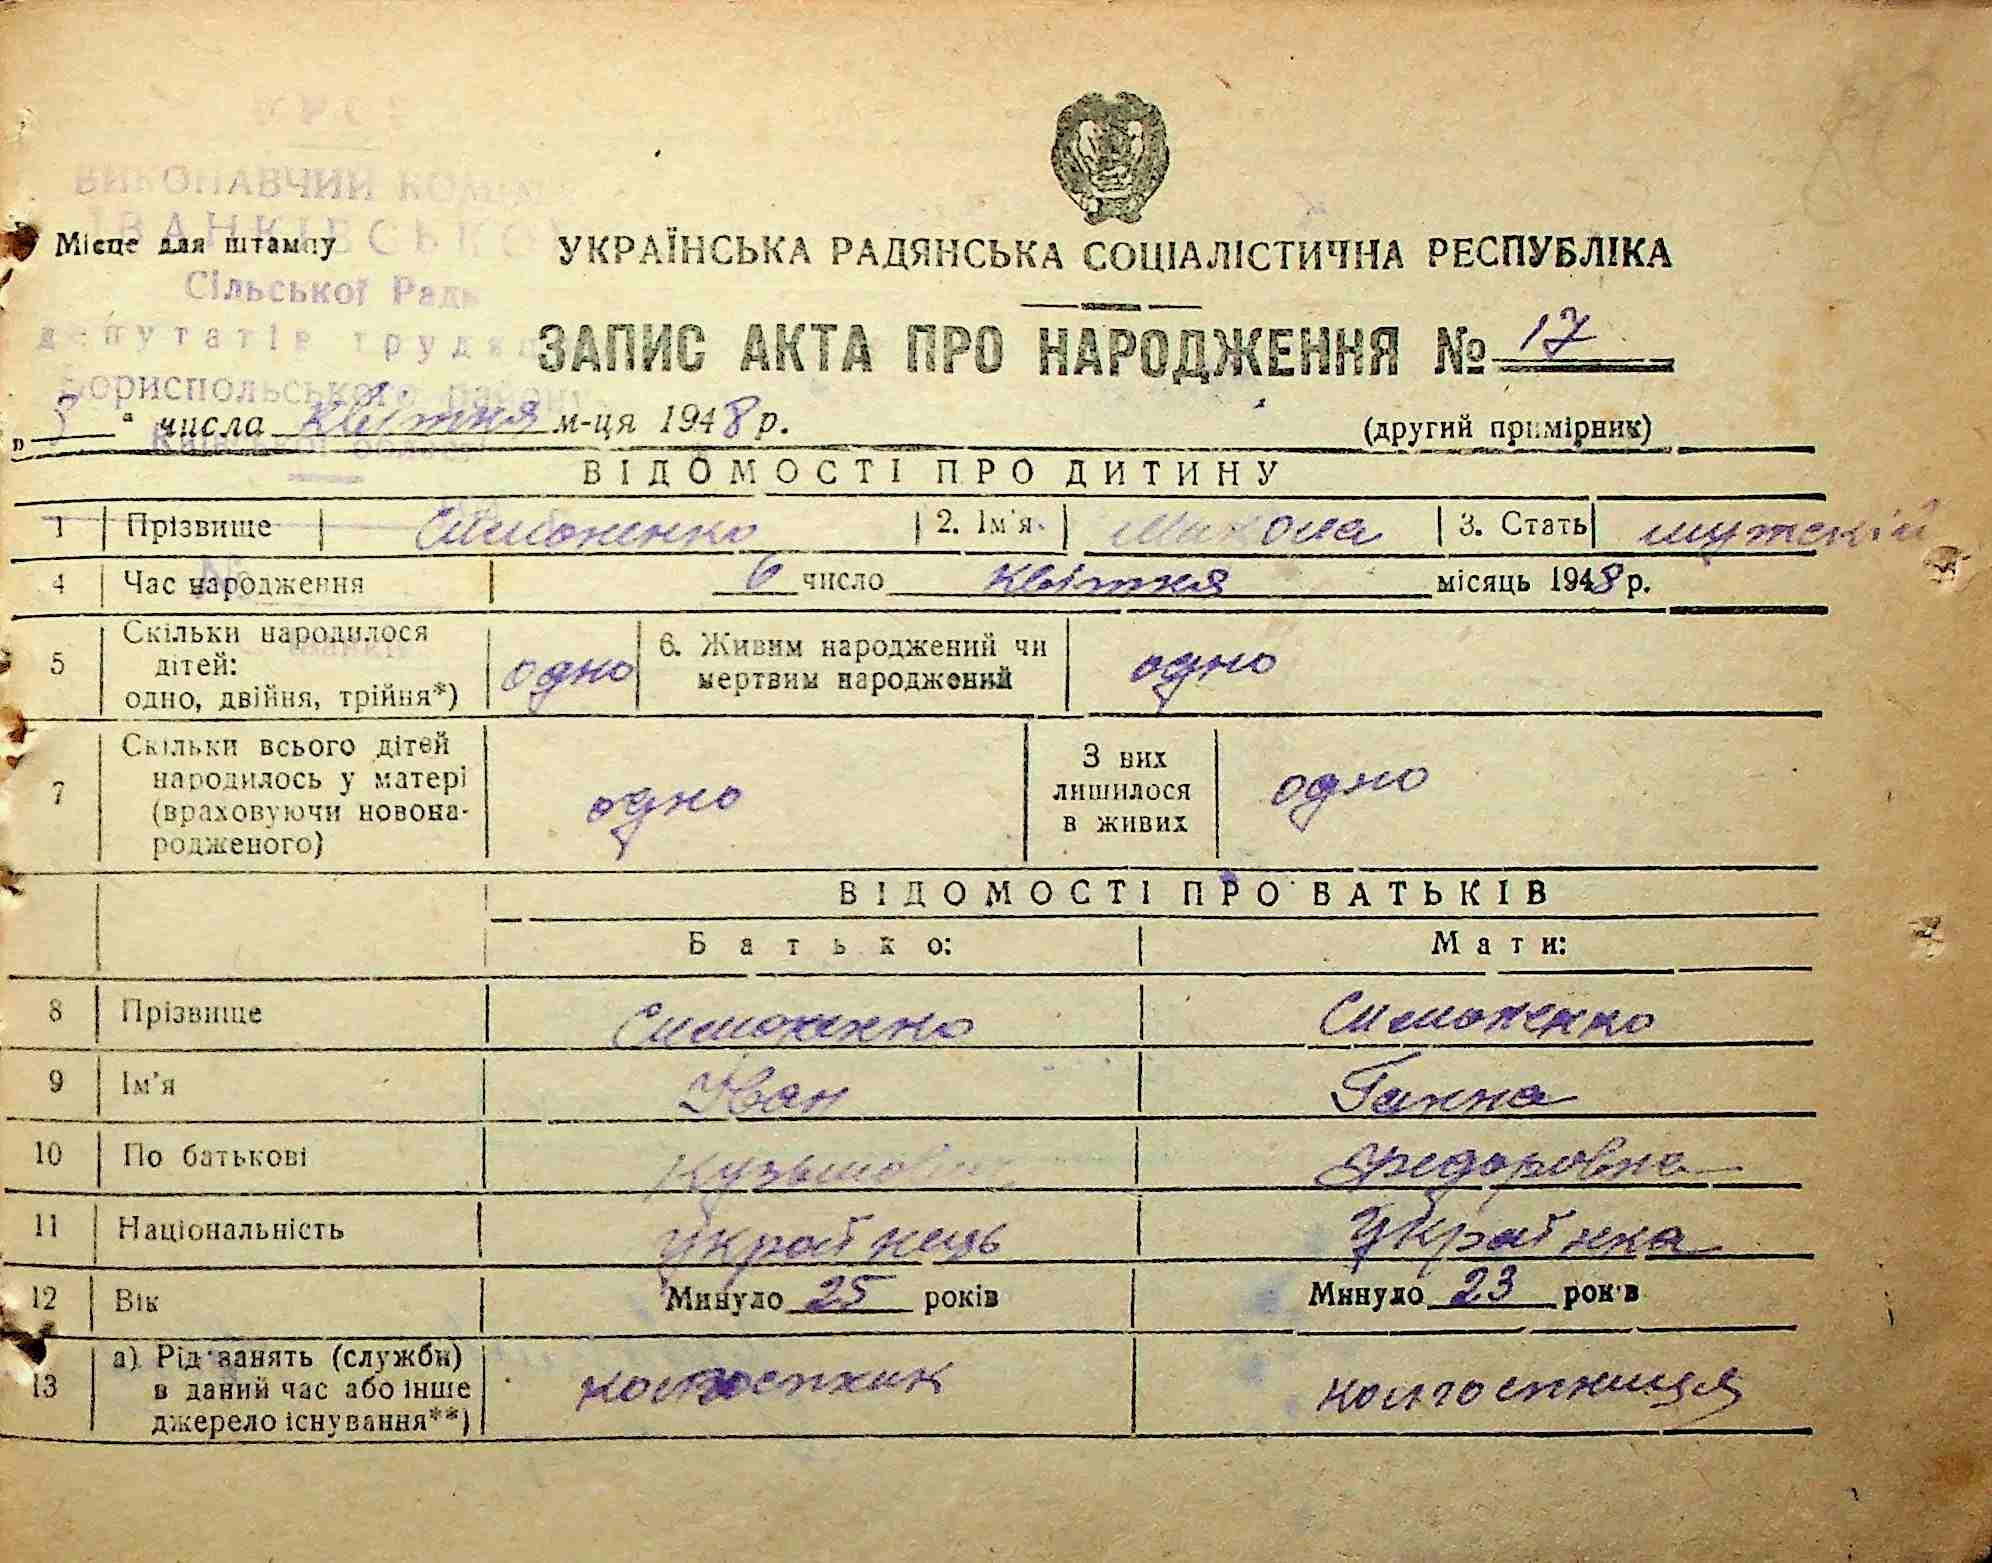 УРСР
ВИКОНАВЧИЙ
ІВАНКІВСЬКОЇ
Місце для штампу
УКРАЇНСЬКА РАДЯНСЬКА СОЦІАЛІСТИЧНА РЕСПУБЛІКА
Сільської Ради
депутатів
ЗАПИС АКТА ПРО НАРОДЖЕННЯ № 17
Бориспольського району
„8“ числа квітня м-ця 1948 р.
(другий примірник)
ВІДОМОСТІ ПРО ДИТИНУ
1 Прізвище Симоненко 2. Ім'я Микола 3. Стать мужскій
4 Час народження 6 число квітня місяць 1948 р.
5 Скільки народилося дітей: одно, двійня, трійня*) одно 6. Живим народжений чи мертвим народжений одно
7 Скільки всього дітей народилось у матері (враховуючи новонародженого) одно З них лишилося в живих одно
ВІДОМОСТІ ПРО БАТЬКІВ
Батько: Мати:
8 Прізвище Симоненко Симоненко
9 Ім'я Іван Ганна
10 По батькові Кузьмович Федоровна
11 Національність Українець Українка
12 Вік Минуло 25 років Минуло 23 років
13 а) Рід занять (служби) в даний час або інше джерело існування**) колгоспник колгоспниця